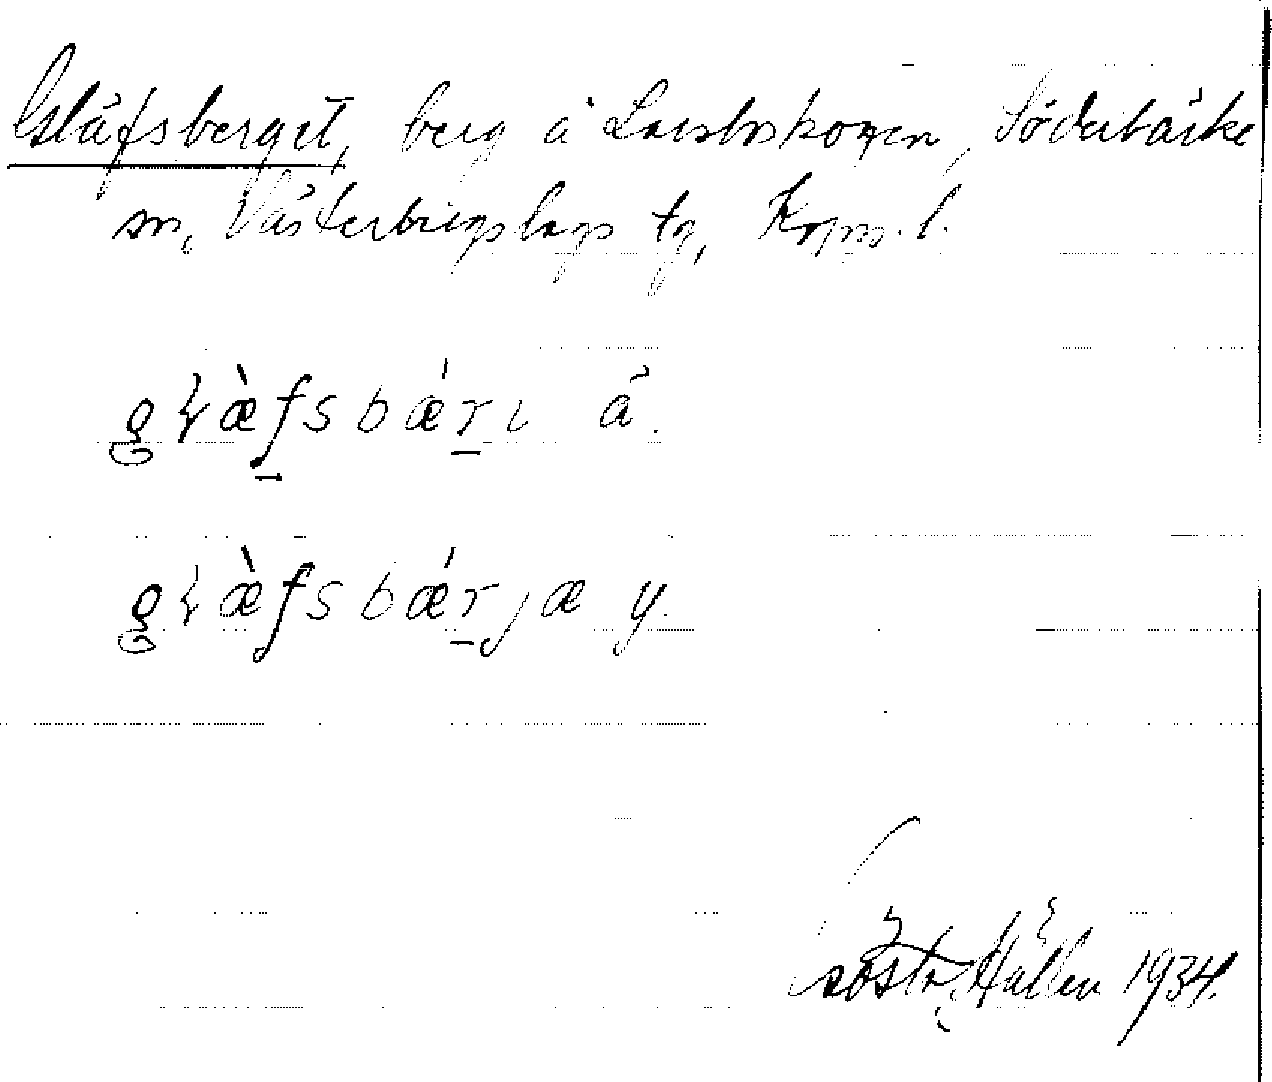 Gläfsberget, berg å Larsboskogen, Söderbärke
sn, Västerbergslags tg, Kopp. l.
gɽæ̀fsbǽrɩ ä.
gɽæ̀fsbǽrjæ y.
Gösta Hállen 1934.